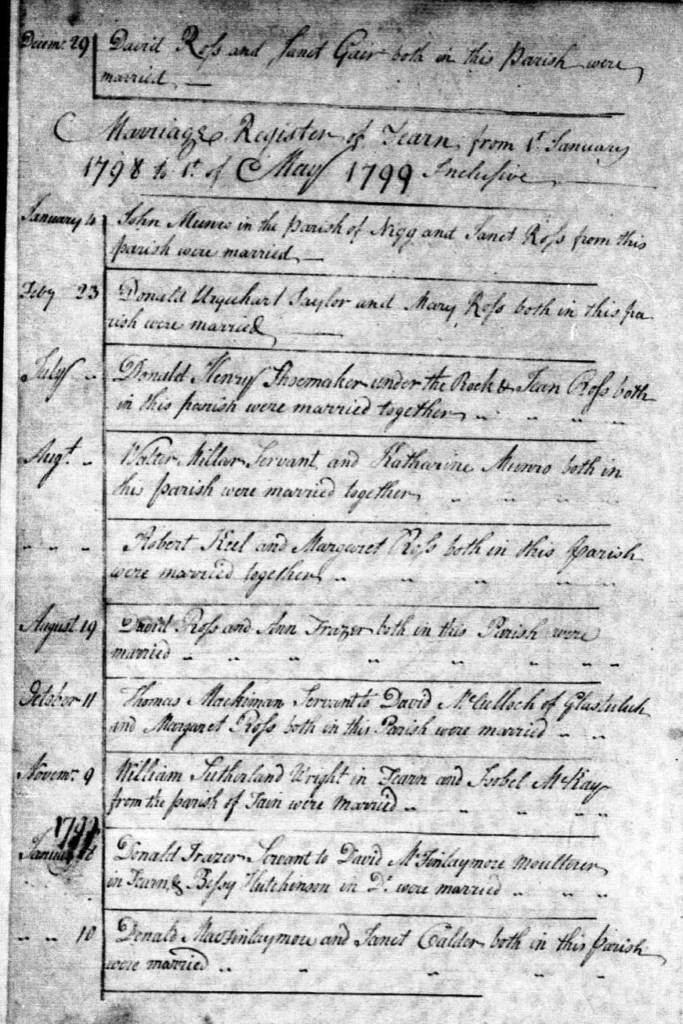 Decemr. 29 David Ross and Janet Gair both in this Parish were
married
Marriage Register of Fearn from 1st January
1798 to 1st of May 1799 Inclusive
January 4 John Munro in the Parish of Nigg and Janet Ross from this
parish were married
Feby 23 Donald Urquhart Taylor and Mary Ross both in this pa
rish were married
July " Donald Henry Shoemaker under the Rock & Jean Ross both
in this parish were married together " " " "
Augt. " Walter Millar Servant and Katharine Munro both in
this parish were married together " " " "
" " " Robert Keel and Margaret Ross both in this parish
were married together " " " "
August 19 David Ross and Ann Frazer both in this Parish were
married " " " " " " " "
October 11 Thomas Mackiman Servant to David McCulloch of Glastulich
and Margaret Ross both in this Parish were married " "
Novemr. 9 William Sutherland Wright in Fearn and Isobel McKay
from the parish of Tain were married " " " "
1799
January Donald Frazer Servant to David McFinlaymore moulterer
in Fearn & Bessy Hutchinson in Do. were married " " "
" " 10 Donald MacFinlaymore and Janet Calder both in this parish
were married " " " " "